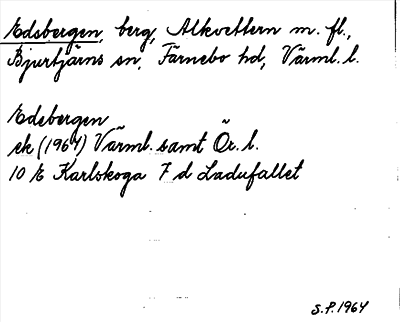 Edsbergen, berg, Alkvettern m. fl.,
Bjurtjärns sn, Färnebo hd, Värml. l.
Edsbergen
ek (1964) Värml. samt Ör. l.
10 E Karlskoga 7 d Ladufallet
S.P. 1964